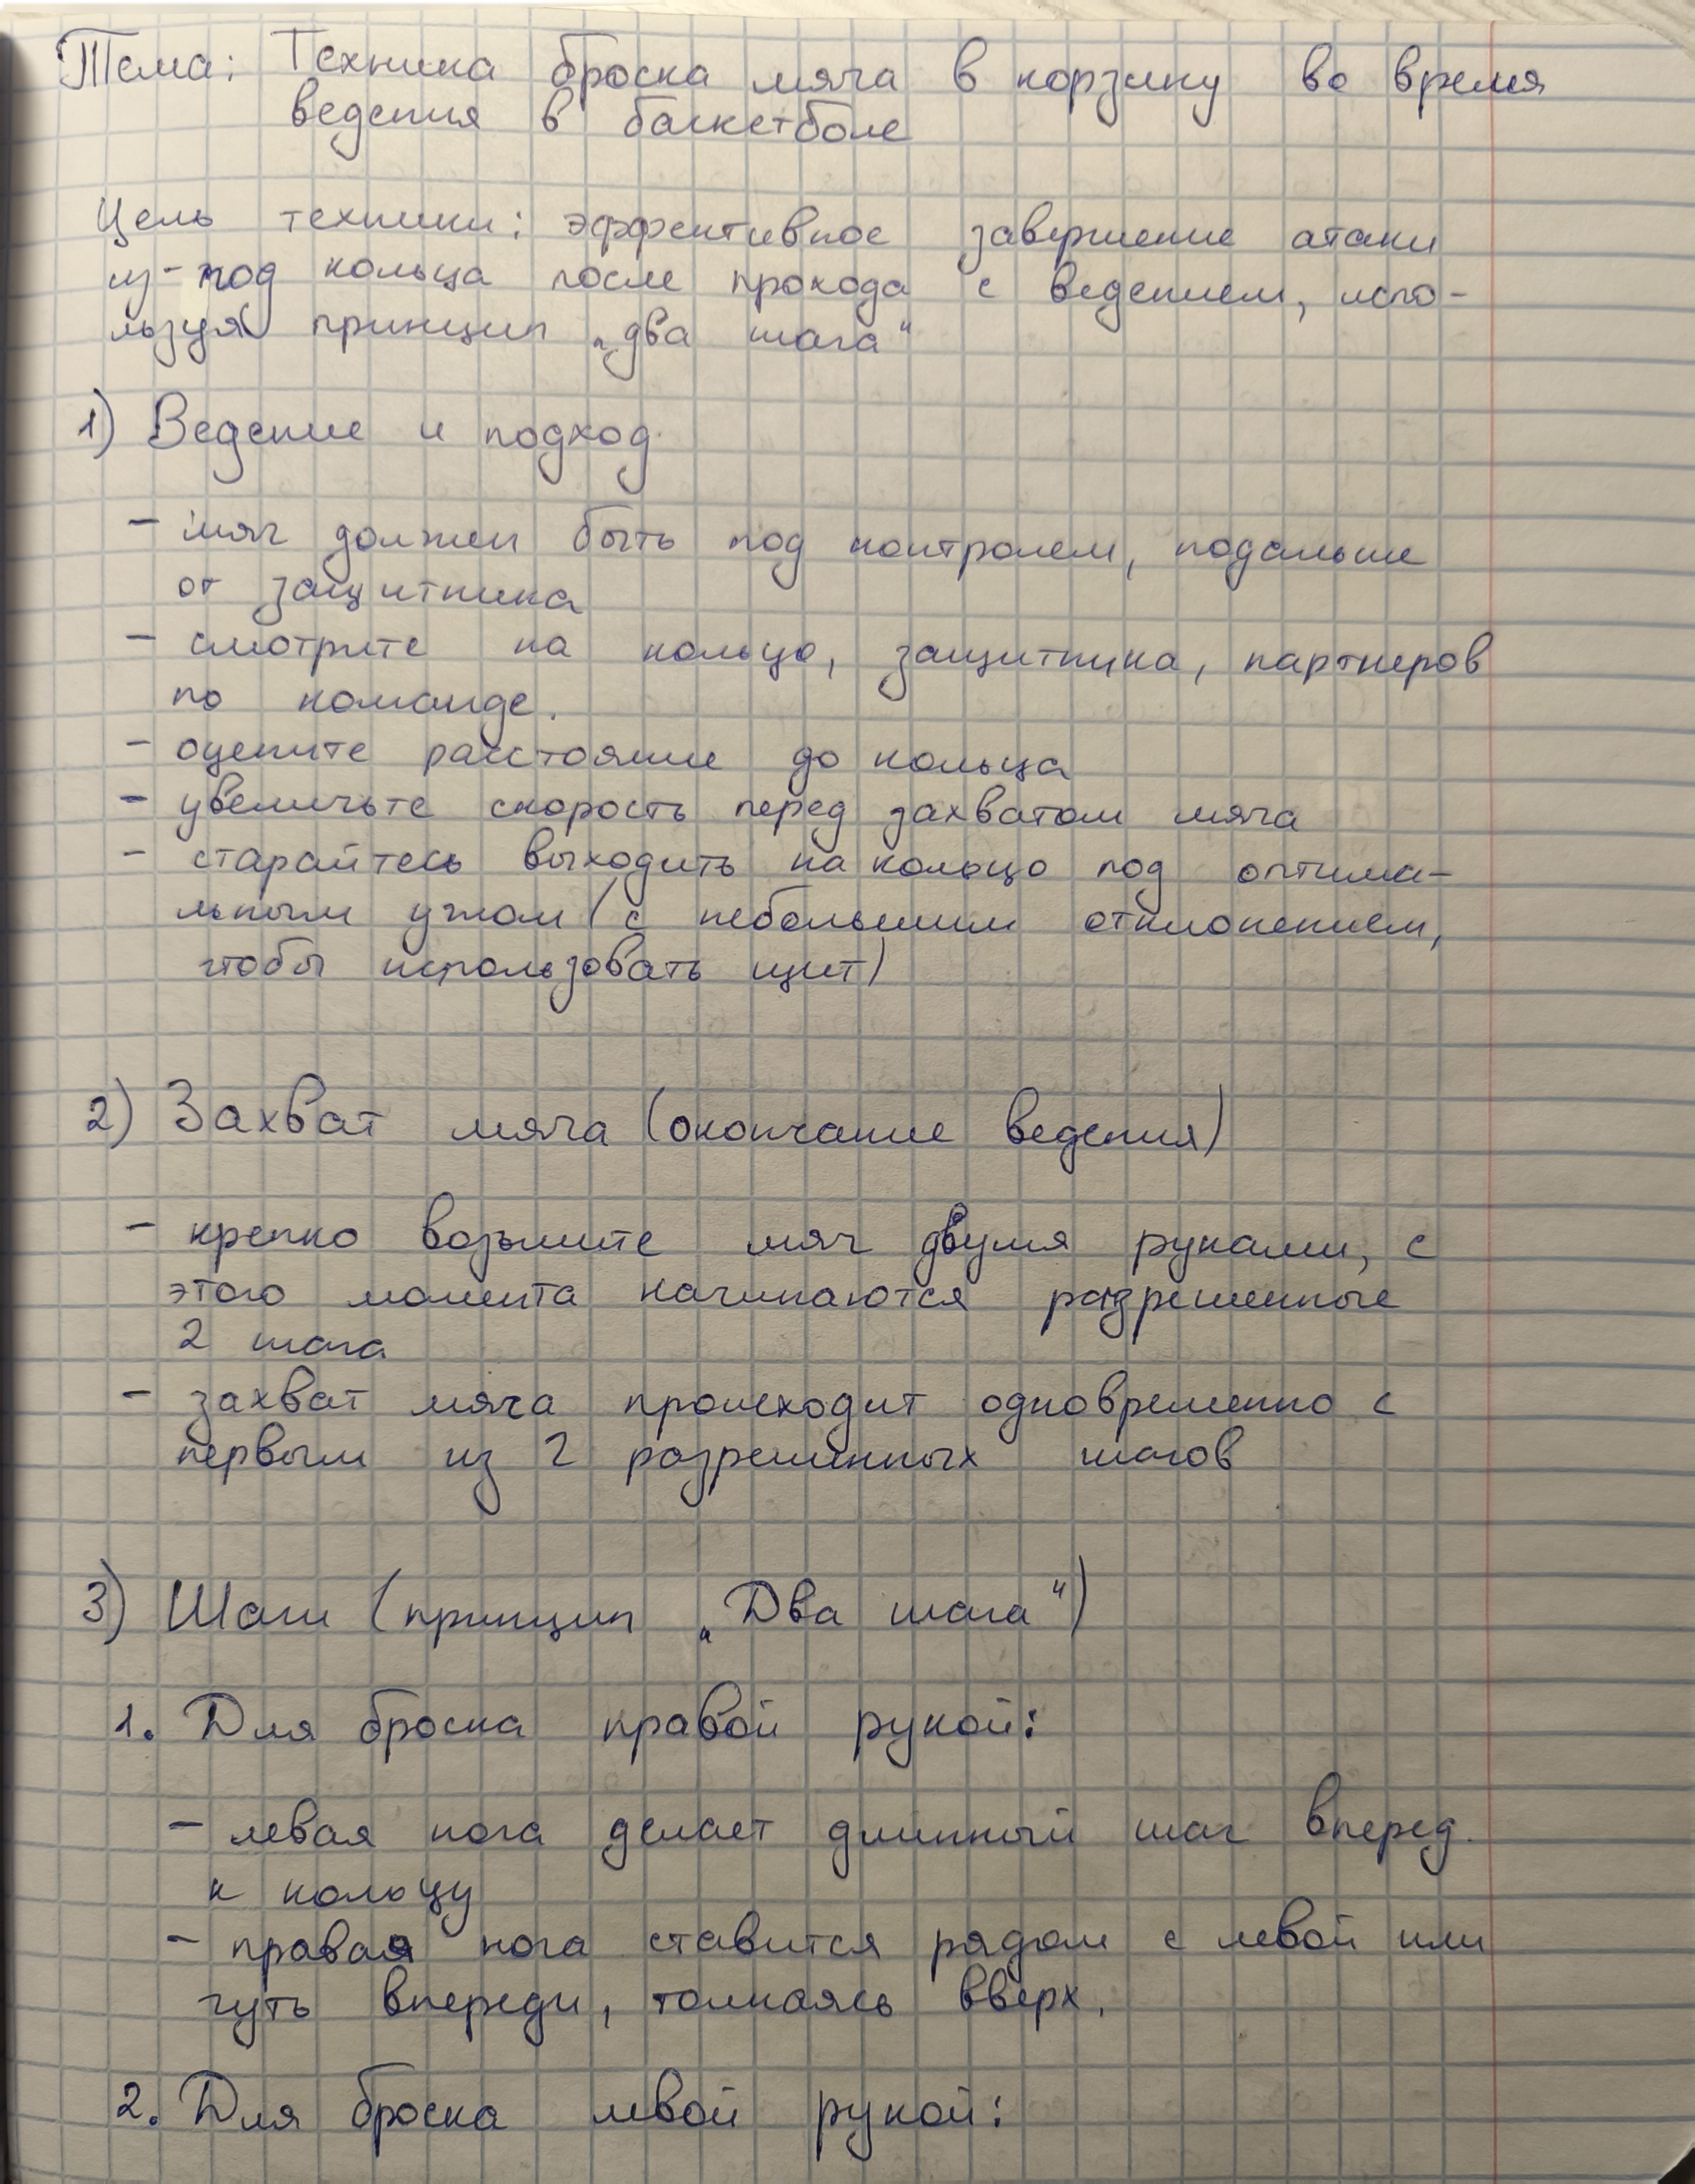 Тема: Техника броска мяча в корзину во время
ведения в баскетболе
Цель техники: эффективное завершение атаки
из-под кольца после прохода с ведением, испо-
льзуя принцип "два шага"
1) Ведение и подход.
- мяч должен быть под контролем, подальше
от защитника
- смотрите на кольцо, защитника, партнеров
по команде.
- оцените расстояние до кольца
- увеличьте скорость перед захватом мяча
- старайтесь выходить на кольцо под оптима-
льным углом (с небольшим отклонением,
чтобы использовать щит)
2) Захват мяча (окончание ведения)
- крепко возьмите мяч двумя руками, с
этого момента начинаются разрешенные
2 шага
- захват мяча происходит одновременно с
первым из 2 разрешенных шагов
3) Шаги (принцип "Два шага")
1. Для броска правой рукой:
- левая нога делает длинный шаг вперед
к кольцу
- правая нога ставится рядом с левой или
чуть впереди, толкаясь вверх.
2. Для броска левой рукой: